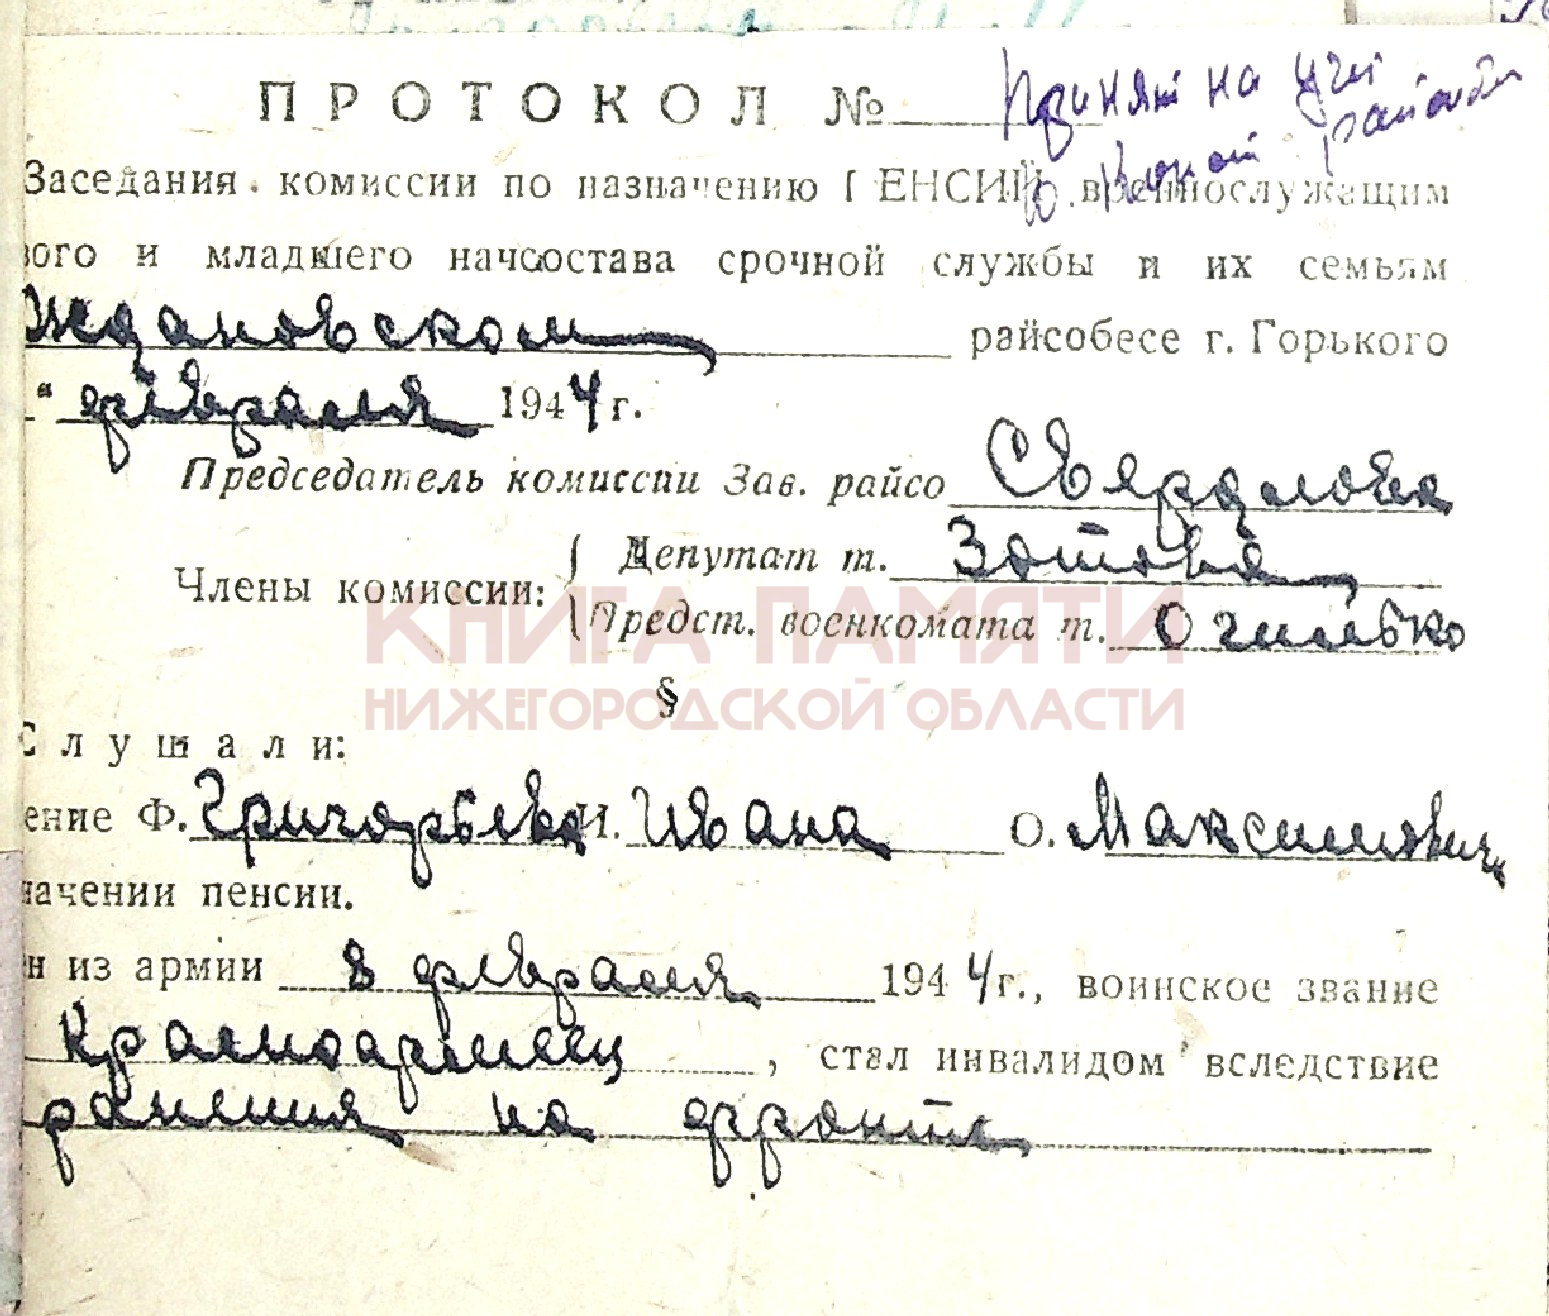 ПРОТОКОЛ №
Принят на учет
районом
Заседания комиссии по назначению ПЕНСИИ военнослужащим
вого и младшего начсостава срочной службы и их семьям
Ждановском райсобесе г. Горького
" февраля 1944 г.
Председатель комиссии Зав. райсо Свердлова
Депутат т. Зотова
Члены комиссии:
Предст. военкомата т. Огилько
КНИГА ПАМЯТИ
§
НИЖЕГОРОДСКОЙ ОБЛАСТИ
Слушали:
ение Ф. Григорьева И. Ивана О. Максимович
начении пенсии.
н из армии 8 февраля 1944 г., воинское звание
Красноармеец, стал инвалидом вследствие
ранения на фронте